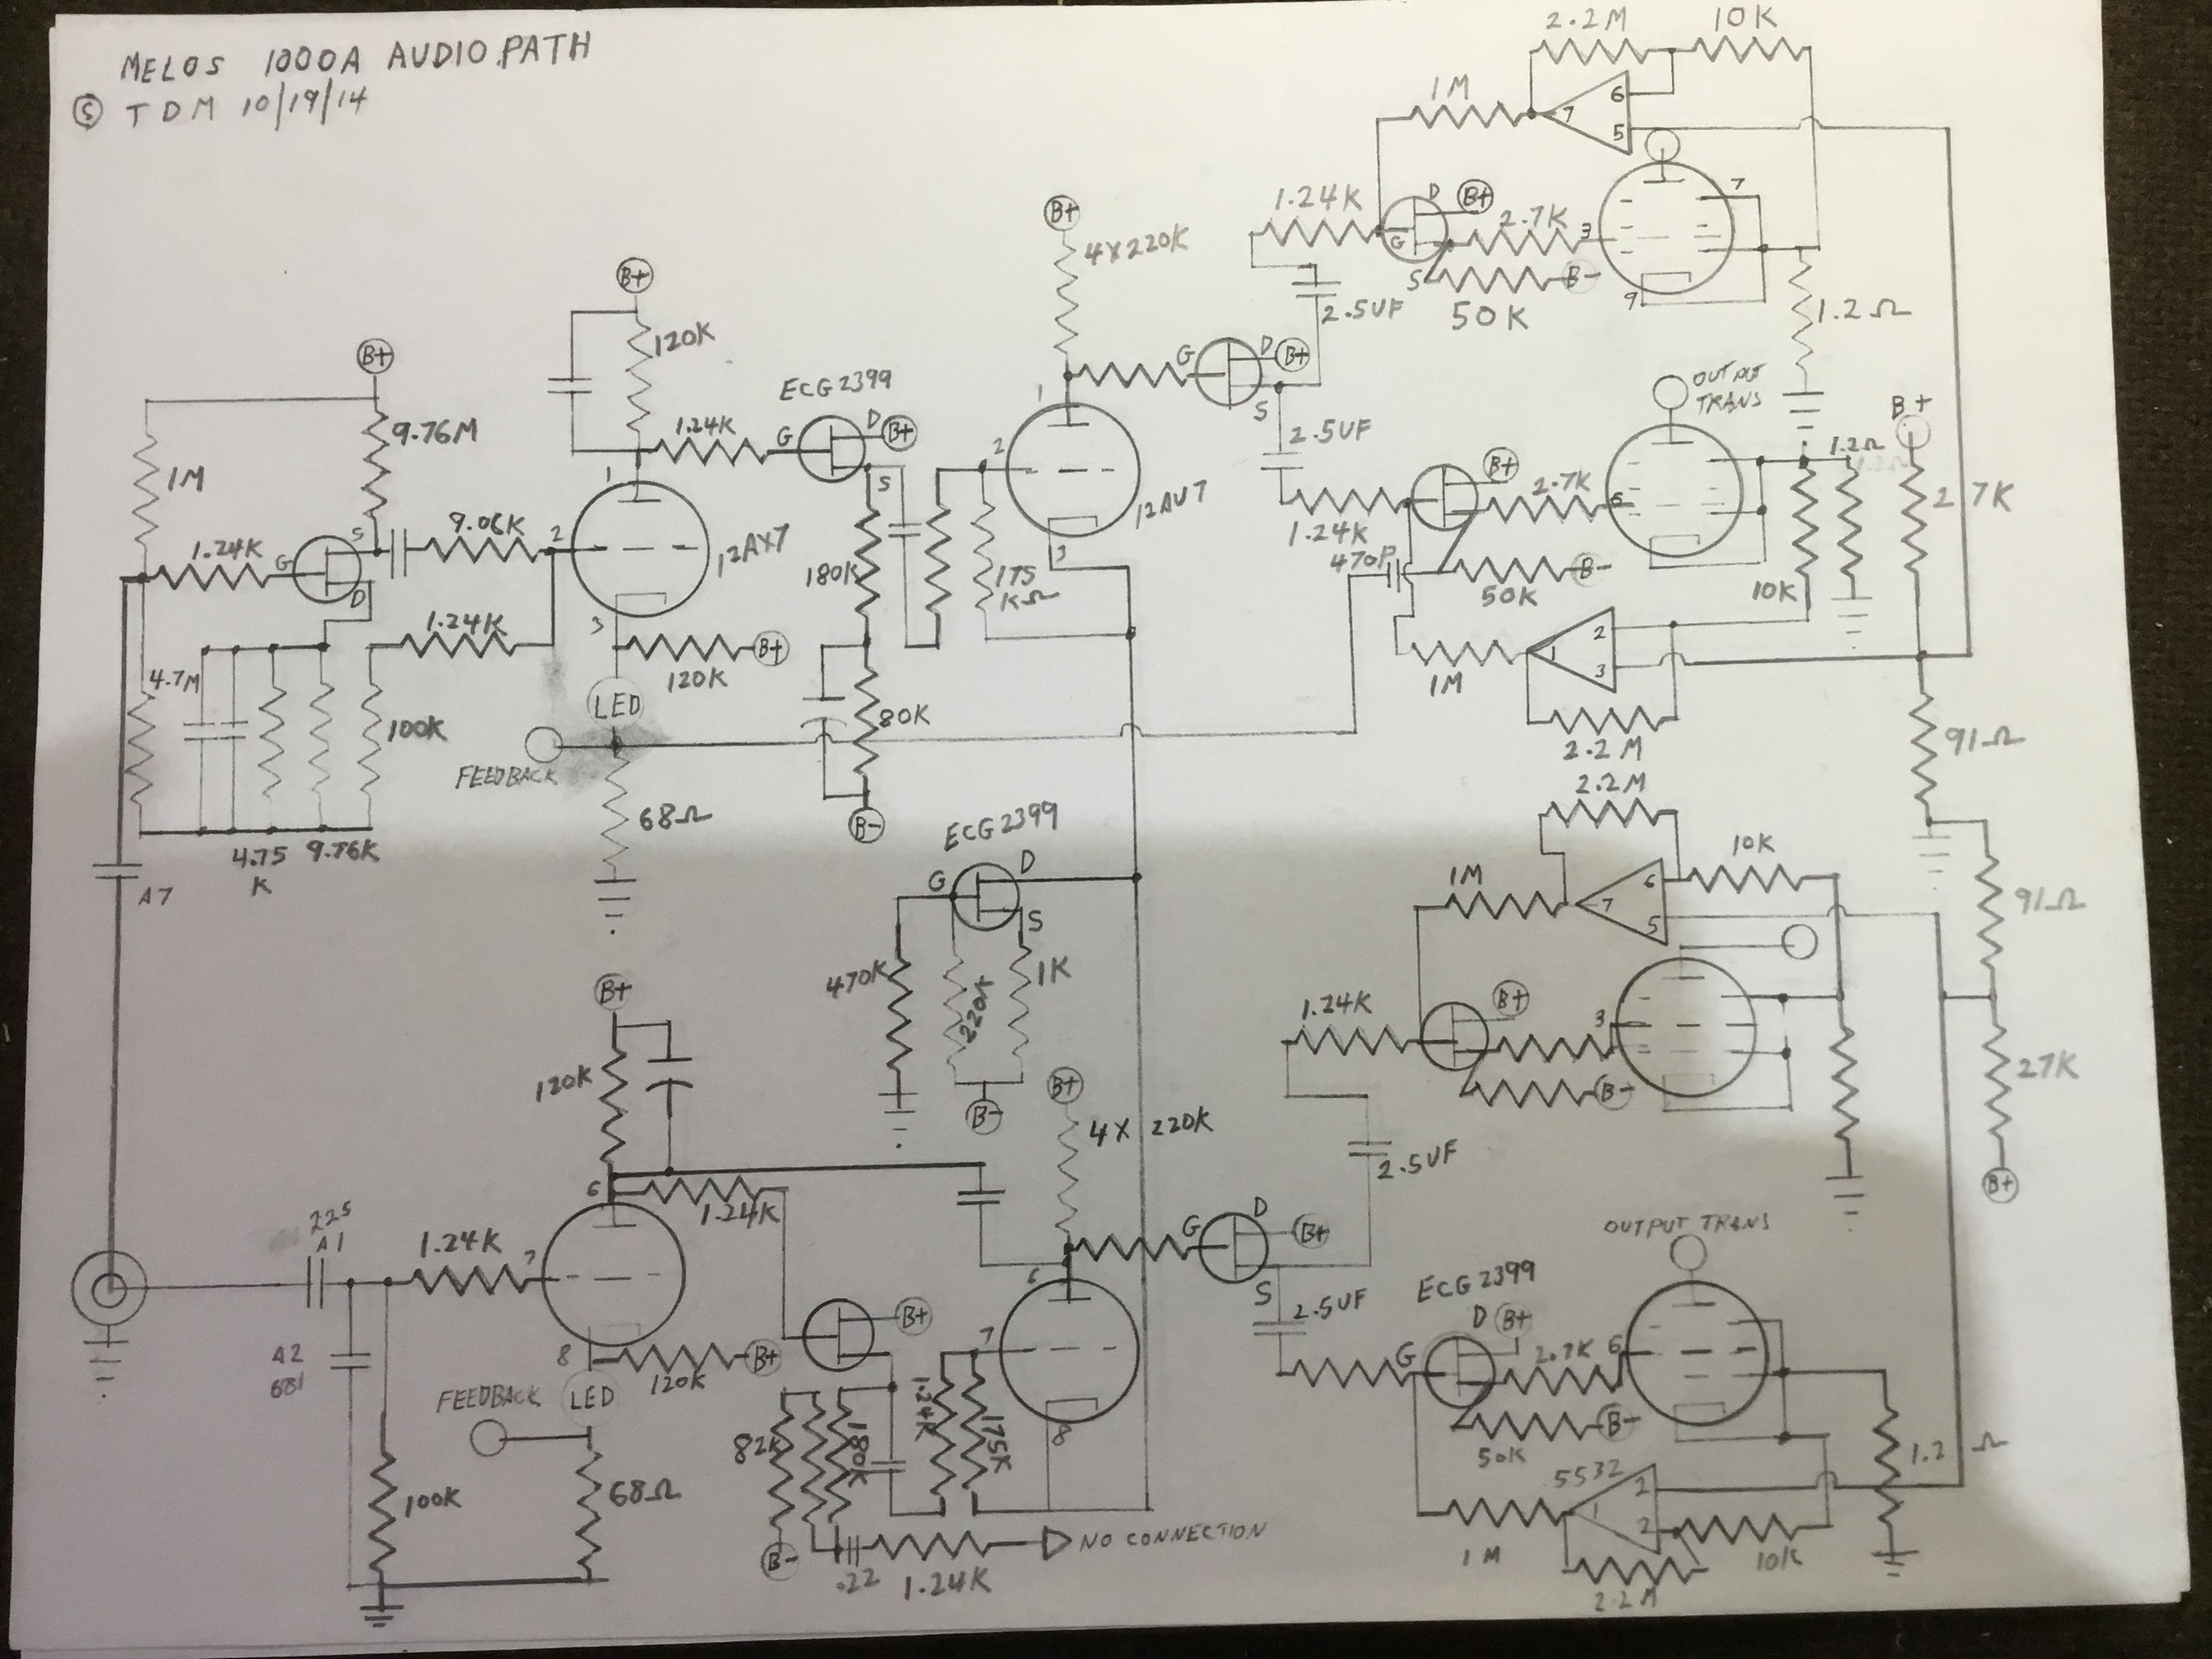 MELOS 1000A AUDIO PATH
Ⓢ TDM 10/19/14
2.2M 10K
1M
6
7
5
1.24K
D B+
2.7K
3
7
G
S
B-
9
50K
2.5UF
1.2Ω
B+
4X220K
B+
120K
ECG2399
G D B+
S
B+
9.76M
1M
1.24K
G D B+
S
1
2
12AU7
3
2.5UF
OUTPUT
TRANS
B+
1.2Ω
2.7K
1.24K
G
S
D
9.06K
1
2
12AX7
3
1.24K
120K
B+
LED
180K
175
KΩ
B+
2.7K
6
1.24K
470P
50K
B-
10K
2
1
3
1M
2.2M
91Ω
4.7M
100K
4.75
K
9.76K
FEEDBACK
68Ω
80K
B-
A7
ECG2399
G D
S
470K
220K
1K
B-
2.2M
10K
1M
6
7
5
91Ω
1.24K
B+
3
B-
27K
B+
2.5UF
B+
120K
6
1.24K
B+
4X 220K
G D B+
S
6
2.5UF
225
A1
1.24K
7
A2
681
8
120K
B+
FEEDBACK
LED
100K
68Ω
B+
82K
180K
1.24K
175K
7
8
B-
.22
1.24K
NO CONNECTION
OUTPUT TRANS
ECG2399
G D B+
2.7K
6
50K
B-
5532
2
1
2
1M
10K
2.2M
1.2 Ω